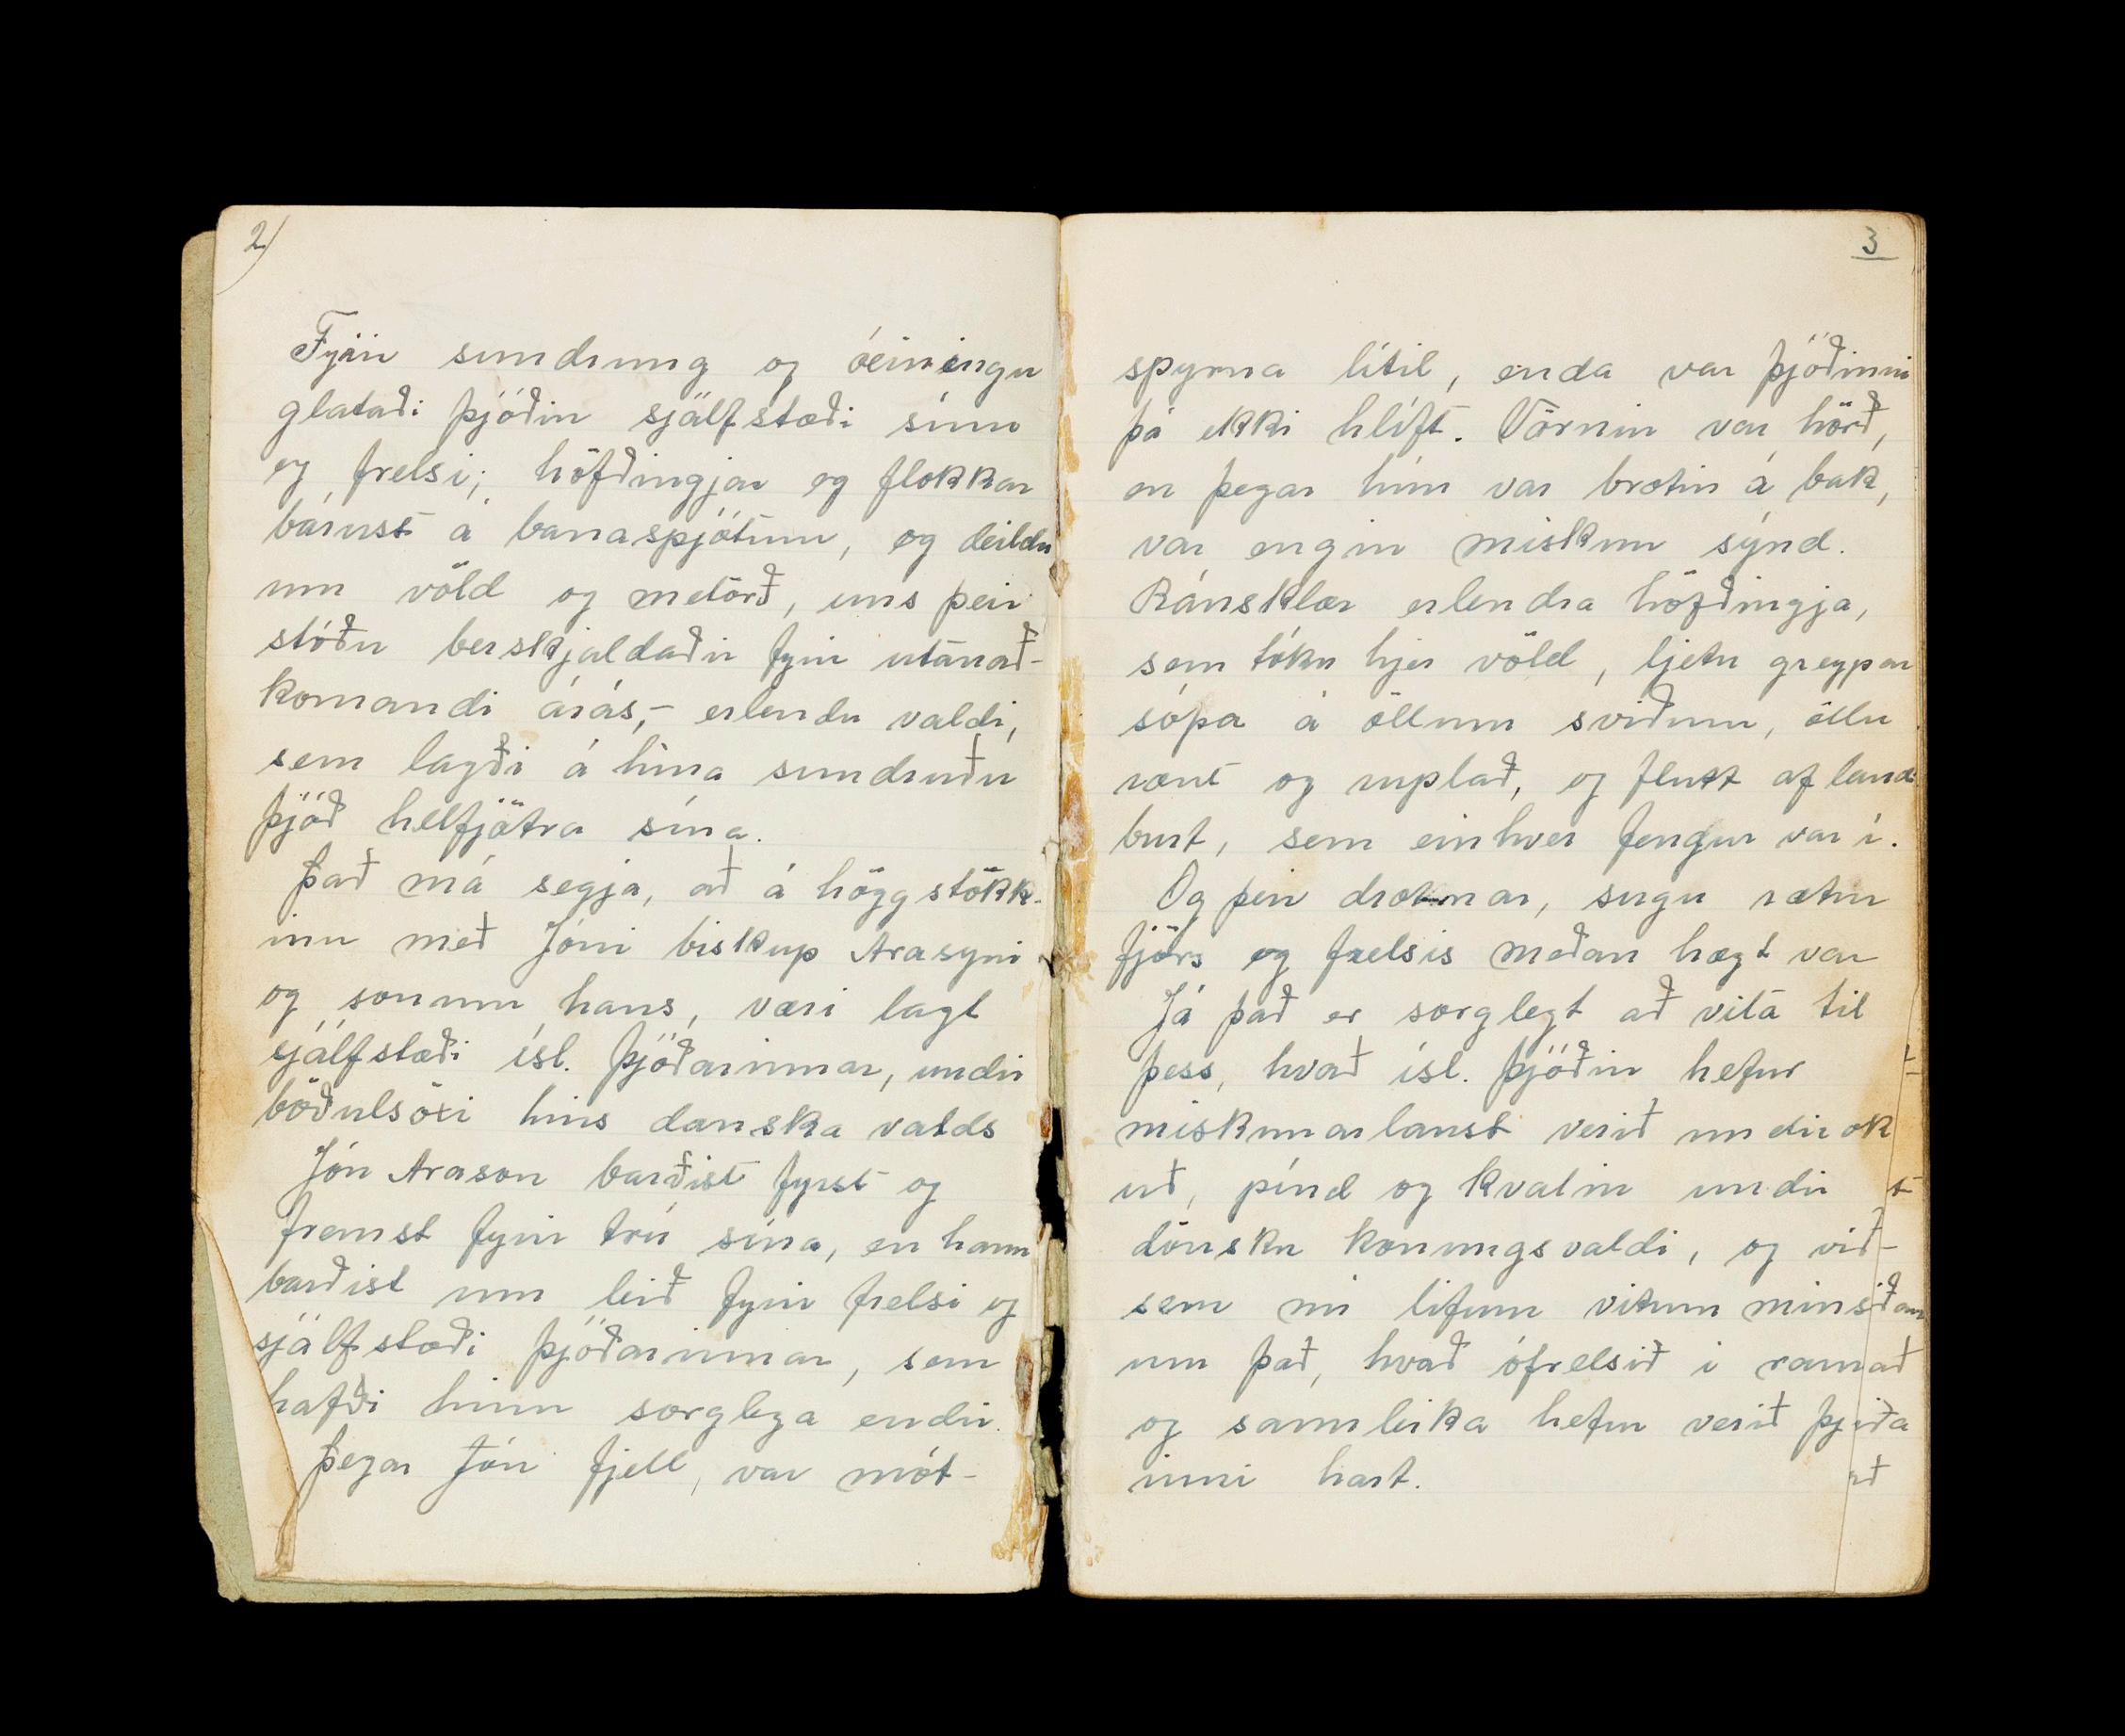 2)
Fyrir sundrung og óeiningu
glataði þjóðin sjálfstæði sínu
og frelsi; höfðingjar og flokkar
bárust á banaspjótum, og deildu
um völd og metorð, uns þeir
stóðu berskjaldaðir fyrir utanað-
komandi árás,- erlendu valdi,
sem lagði á hina sundruðu
þjóð helfjötra sína.
Það má segja, að á höggstokk-
inn með Jóni biskup Arasyni
og sonum hans, væri lagt
sjálfstæði ísl. þjóðarinnar, undir
böðulsöxi hins danska valds
Jón Arason barðist fyrst og
fremst fyrir trú sína, en hann
barðist um leið fyrir frelsi og
sjálfstæði þjóðarinnar, sem
hafði hinn sorglega endir.
Þegar Jón fjell, var mót-
3
spyrna lítil, enda var þjóðinni
þá ekki hlíft. Vörnin var hörð,
en þegar hún var brotin á bak,
var engin miskun sýnd.
Ránsklær erlendra höfðingja,
sem tóku hjer völd, ljetu greypar
sópa á öllum sviðum, öllu
rænt og ruplað, og flutt af landi
burt, sem einhver fengur var í.
Og þeir drotnar, sugu rætur
fjörs og frelsis meðan hægt var
Já það er sorglegt að vita til
þess, hvað ísl. þjóðin hefur
miskunarlaust verið undirok
uð, pínd og kvalin undir
dönsku konungsvaldi, og við-
sem nú lifum vitum minst
um það, hvað ófrelsið í raun
og sannleika hefur verið þjóðar
inni hart.